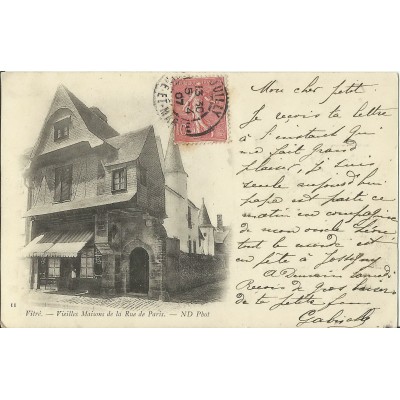 Mon cher petit.
Je reçois ta lettre
à l'instant qui
me fait grand
plaisir, je suis
seule aujourd'hui
papa est parti ce
matin en compagnie
de mon oncle
tout le monde est
en fête à
A Demain samedi
Reçois de gros baisers
de ta petite
Gabrielle
13 10
5-4
07
11
Vitré. — Vieilles Maisons de la Rue de Paris. — ND Phot